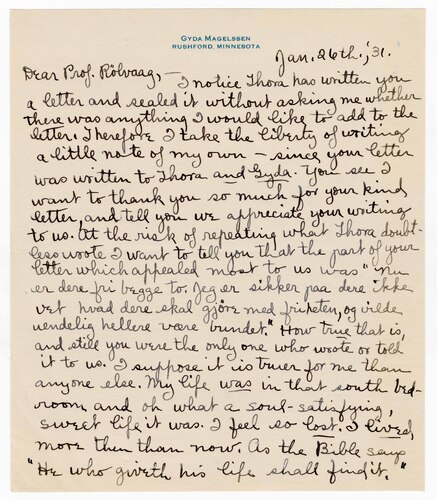 GYDA MAGELSSEN
RUSHFORD, MINNESOTA
Jan. 26th., '31.
Dear Prof. Rölvaag, — I notice Thora has written you
a letter and sealed it without asking me whether
there was anything I would like to add to the
letter. Therefore I take the liberty of writing
a little note of my own — since your letter
was written to Thora and Gyda. You see I
want to thank you so much for your kind
letter, and tell you we appreciate your writing
to us. At the risk of repeating what Thora doubt-
less wrote I want to tell you that the part of your
letter which appealed most to us was "Nu
er dere fri begge to. Jeg er sikker paa dere ikke
vet hvad dere skal gjöre med friheten, og vilde
uendelig hellere være bundet." How true that is,
and still you were the only one who wrote or told
it to us. I suppose it is truer for me than
anyone else. My life was in that south bed-
room and oh what a soul-satisfying,
sweet life it was. I feel so lost. I lived
more then than now. As the Bible says
"He who giveth his life shall find it."